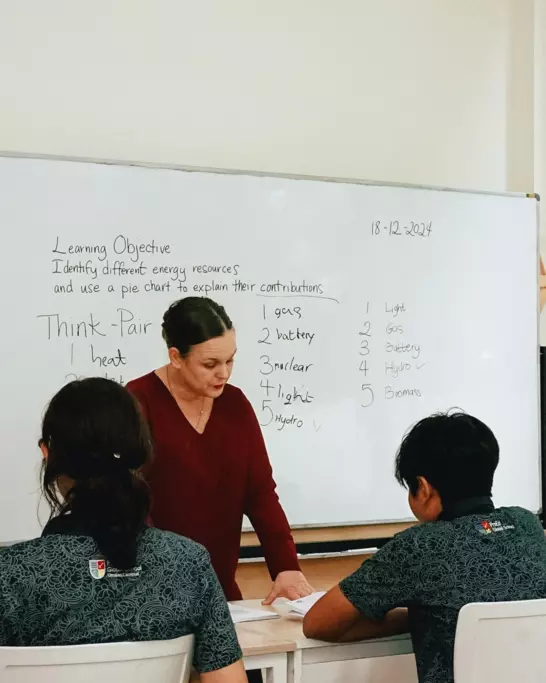 18-12-2024
Learning Objective
Identify different energy resources
and use a pie chart to explain their contributions
Think-Pair
1 heat
1 gas
2 battery
3 nuclear
4 light
5 Hydro ✓
1 Light
2 Gas
3 Battery
4 Hydro ✓
5 Biomass